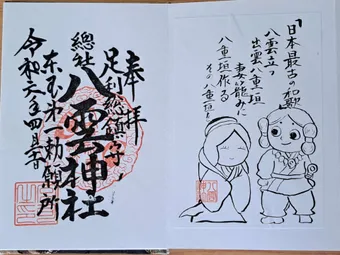 「日本最古の和歌」
八雲立つ
出雲八重垣
妻籠みに
八重垣作る
その八重垣を
奉拝
足利總鎮守
總社 八雲神社
東国第一勅願所
令和六年四月